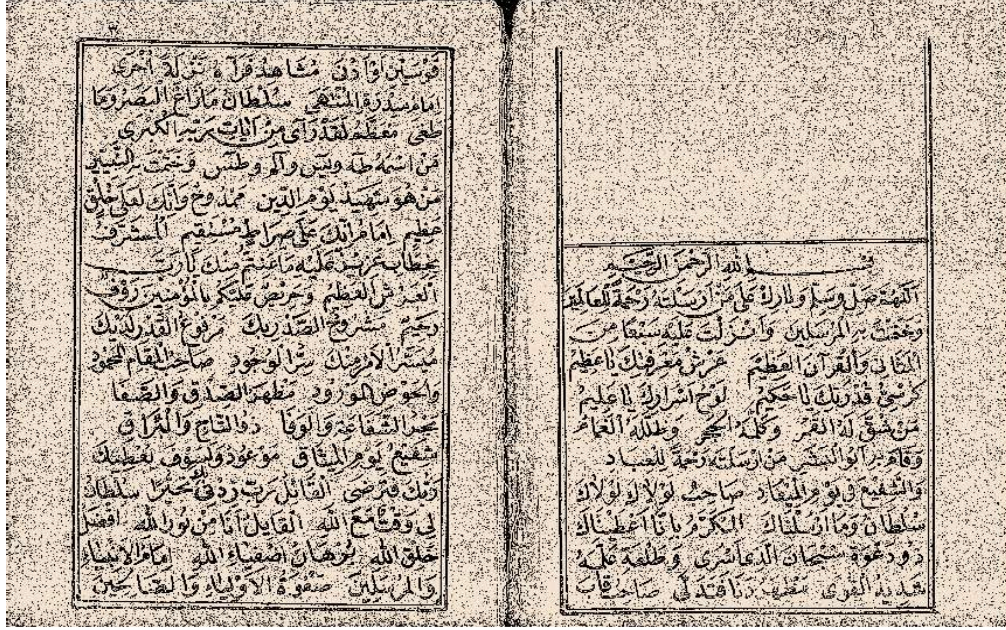 بسم الله الرحمن الرحيم
اللهم صل وسلم وبارك على من ارسلته رحمة للعالمين
وختمت به المرسلين وانزلت عليه سبعا من
المثاني والقرآن العظيم عرش معرفتك يا عظيم
كرسي قدرتك يا حكيم لوح اسرارك يا عليم
من شق له القمر وكلمه الحجر وظلله الغمام
من ارسلته رحمة للعباد
والشفيع في يوم المیعاد صاحب لولاك لولاك
سلطان وما ارسلناك المكرم بانا اعطيناك
دعوة سبحان الذي اسرى وطلعة علمه
شديد القوى مظهر دنا فتدلى صاحب قاب
قوسين او ادنى مشاهد قرآه نزلة اخرى
امام سدرة المنتهى سلطان ما زاغ البصر وما
طغى معظم لقد رآى من آيات ربه الكبرى
من اسمه طه ويس والم وطس وختمت به النبيين
من هو شهيد يوم الدين ممدوح وانك لعلى خلق
عظيم امام انك على صراط مستقيم المشرف
بخطاب عزيز عليه ما عنتم منك يا رب
العرش العظيم وحريص عليكم بالمؤمنين رؤف
رحيم مشروح الصدر بك مرفوع القدر لديك
ميسر الامر منك سر الوجود صاحب المقام المحمود
والحوض المورود مظهر الصدق والصفا
الشفاعة والوفا ذو التاج والبراق
شفيع يوم الميثاق موعود ولسوف يعطيك
ربك فترضى القائل رب زدني سلطان
لي وقت مع الله القايل انا من نور الله افضل
خلق الله برهان اصفياء الله امام الانبياء
والمرسلين صفوة الاولياء والصالحين